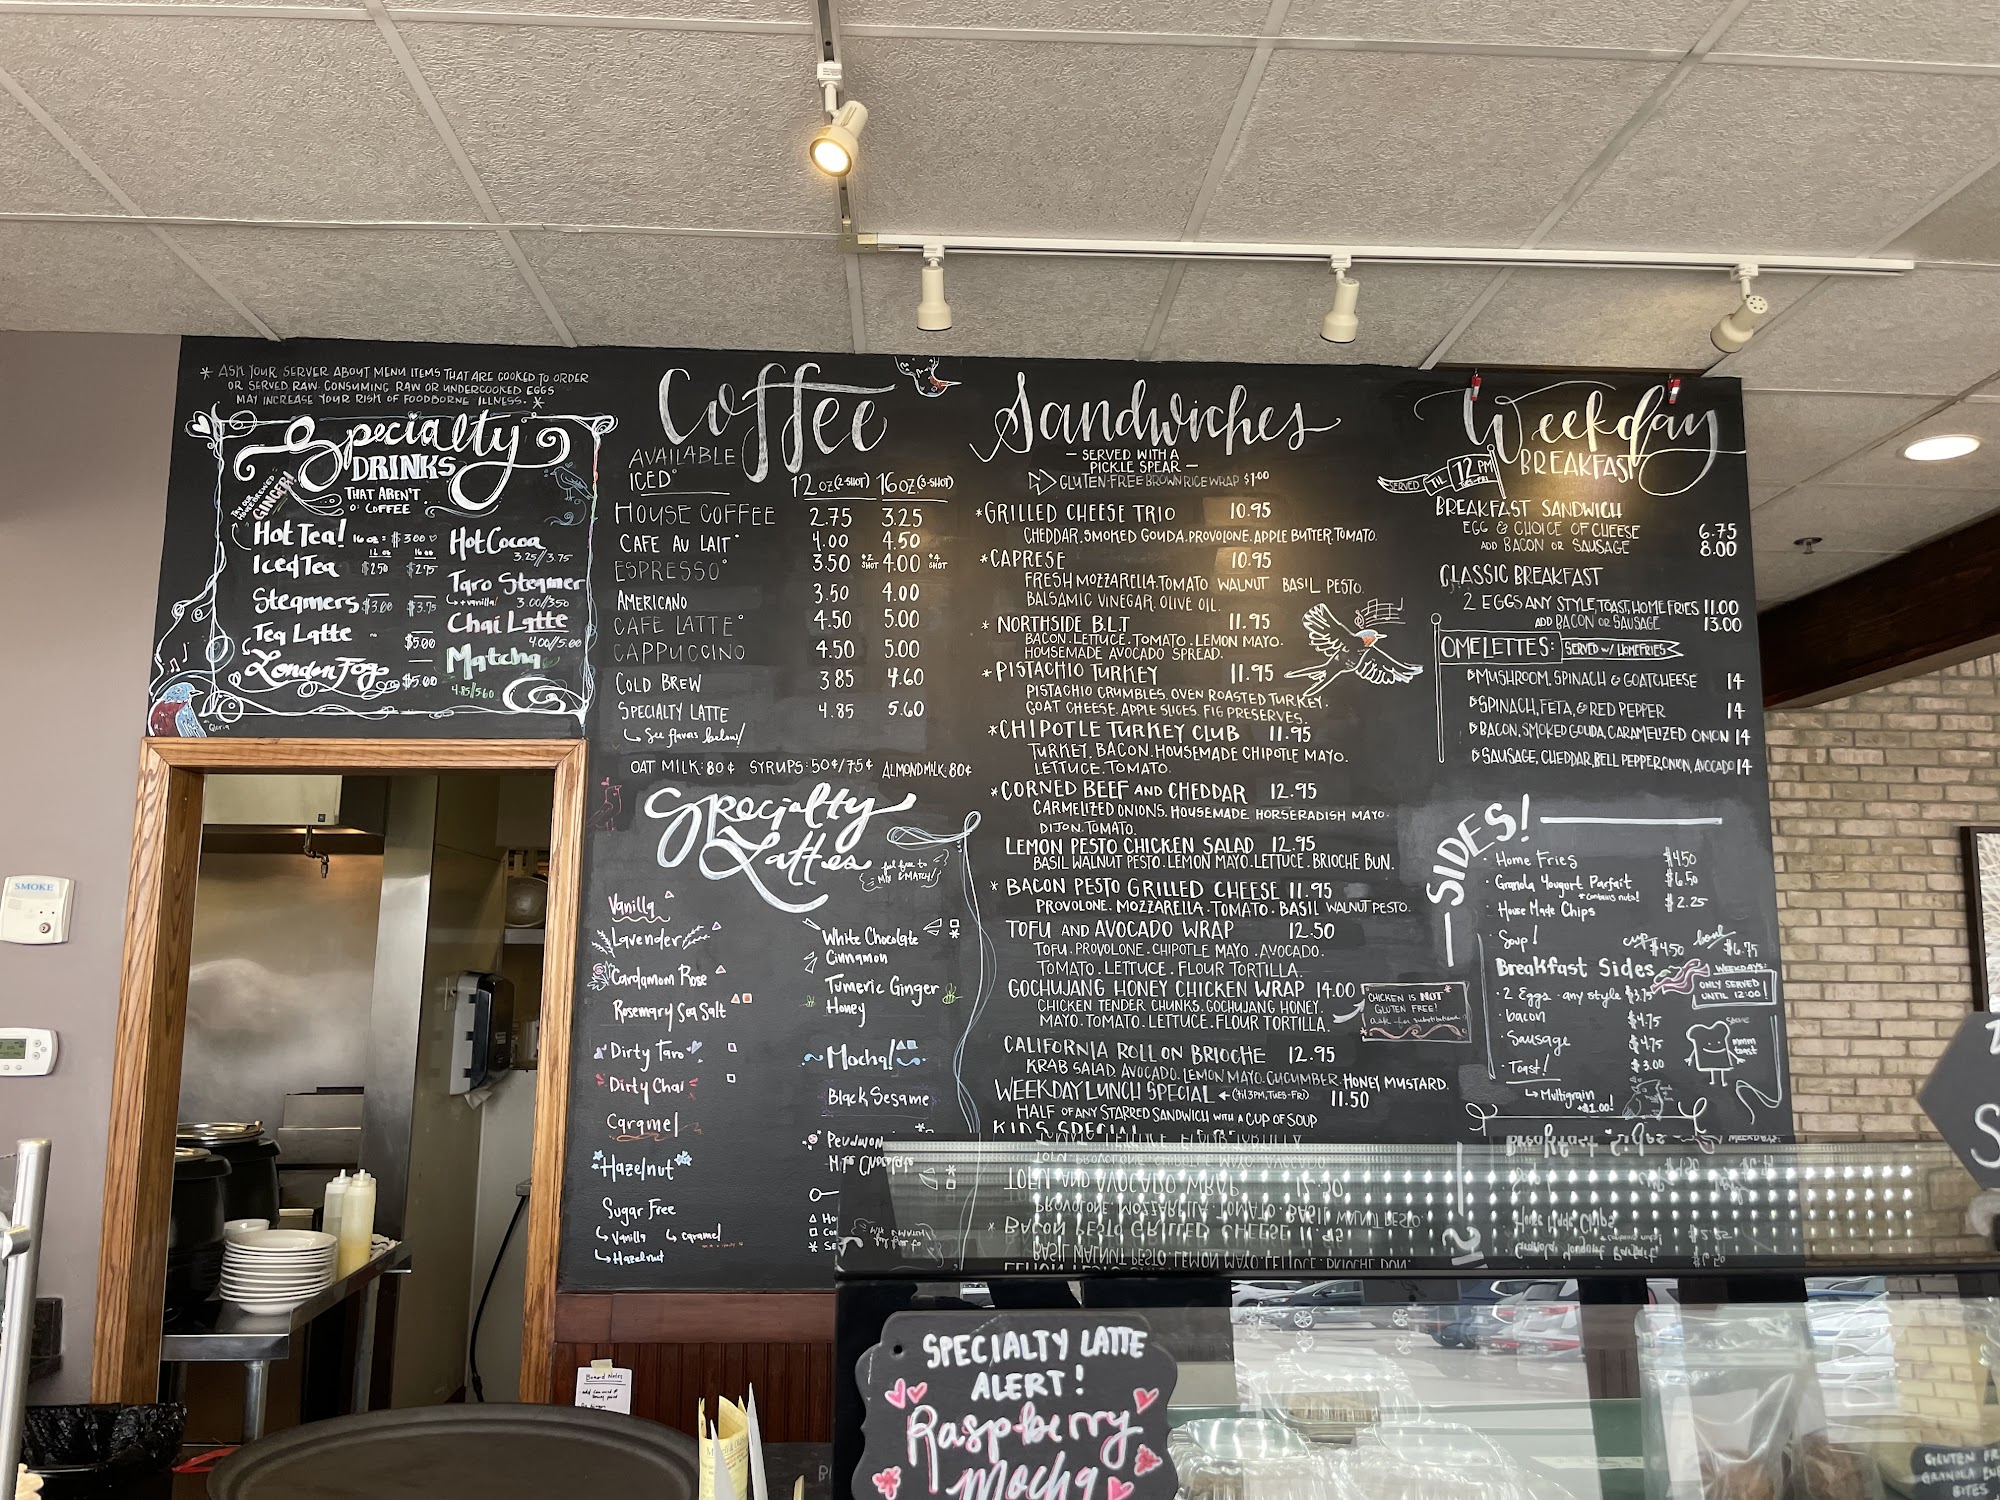 * ASK YOUR SERVER ABOUT MENU ITEMS THAT ARE COOKED TO ORDER
OR SERVED RAW. CONSUMING RAW OR UNDERCOOKED EGGS
MAY INCREASE YOUR RISK OF FOODBORNE ILLNESS. *
Specialty
DRINKS
THAT AREN'T
COFFEE
GINGER!
Hot Tea! 16 oz = $3.00
12 oz 16 oz
Iced Tea $2.50 $2.75
Steamers $3.00 $3.75
Tea Latte $5.00
London Fog $5.00
Hot Cocoa
3.25//3.75
Taro Steamer
+vanilla! 3.00//3.50
Chai Latte
4.00//5.00
Matcha
4.85//5.60
Gloria
Coffee
AVAILABLE
ICED°
12 OZ.(2-SHOT) 16 OZ.(3-SHOT)
HOUSE COFFEE 2.75 3.25
CAFE AU LAIT° 4.00 4.50
ESPRESSO° 3.50 *2 SHOT 4.00 *4 SHOT
AMERICANO 3.50 4.00
CAFE LATTE° 4.50 5.00
CAPPUCCINO 4.50 5.00
COLD BREW 3.85 4.60
SPECIALTY LATTE 4.85 5.60
See flavors below!
OAT MILK: 80¢ SYRUPS: 50¢/75¢ ALMOND MILK: 80¢
Specialty
Lattes
feel free to
MIX & MATCH!
Vanilla
Lavender
Cardamom Rose
Rosemary Sea Salt
Dirty Taro
Dirty Chai
Caramel
Hazelnut
Sugar Free
Vanilla caramel
Hazelnut
White Chocolate
Cinnamon
Tumeric Ginger
Honey
Mocha!
Black Sesame
Sandwiches
— SERVED WITH A
PICKLE SPEAR —
GLUTEN-FREE BROWN RICE WRAP $1.00
*GRILLED CHEESE TRIO 10.95
CHEDDAR. SMOKED GOUDA. PROVOLONE. APPLE BUTTER. TOMATO.
*CAPRESE 10.95
FRESH MOZZARELLA. TOMATO WALNUT BASIL PESTO.
BALSAMIC VINEGAR. OLIVE OIL.
* NORTHSIDE B.L.T 11.95
BACON. LETTUCE. TOMATO. LEMON MAYO.
HOUSEMADE AVOCADO SPREAD.
*PISTACHIO TURKEY 11.95
PISTACHIO CRUMBLES. OVEN ROASTED TURKEY.
GOAT CHEESE. APPLE SLICES. FIG PRESERVES.
*CHIPOTLE TURKEY CLUB 11.95
TURKEY. BACON. HOUSEMADE CHIPOTLE MAYO.
LETTUCE. TOMATO.
*CORNED BEEF AND CHEDDAR 12.95
CARMELIZED ONIONS. HOUSEMADE HORSERADISH MAYO.
DIJON. TOMATO.
LEMON PESTO CHICKEN SALAD 12.95
BASIL WALNUT PESTO. LEMON MAYO. LETTUCE. BRIOCHE BUN.
* BACON PESTO GRILLED CHEESE 11.95
PROVOLONE. MOZZARELLA. TOMATO. BASIL WALNUT PESTO.
TOFU AND AVOCADO WRAP 12.50
TOFU. PROVOLONE. CHIPOTLE MAYO. AVOCADO.
TOMATO. LETTUCE. FLOUR TORTILLA.
GOCHUJANG HONEY CHICKEN WRAP 14.00
CHICKEN TENDER CHUNKS. GOCHUJANG HONEY.
MAYO. TOMATO. LETTUCE. FLOUR TORTILLA.
CHICKEN IS NOT
GLUTEN FREE!
ask for substitutions!
CALIFORNIA ROLL ON BRIOCHE 12.95
KRAB SALAD. AVOCADO. LEMON MAYO. CUCUMBER. HONEY MUSTARD.
WEEKDAY LUNCH SPECIAL ← (til 3PM, TUES-FRI) 11.50
HALF OF ANY STARRED SANDWICH WITH A CUP OF SOUP
KIDS SPECIAL
Weekday
BREAKFAST
SERVED TIL 12 PM
TUES-FRI
BREAKFAST SANDWICH
EGG & CHOICE OF CHEESE 6.75
ADD BACON OR SAUSAGE 8.00
CLASSIC BREAKFAST
2 EGGS ANY STYLE, TOAST, HOME FRIES 11.00
ADD BACON OR SAUSAGE 13.00
OMELETTES: SERVED W/ HOMEFRIES
MUSHROOM, SPINACH & GOAT CHEESE 14
SPINACH, FETA, & RED PEPPER 14
BACON, SMOKED GOUDA, CARAMELIZED ONION 14
SAUSAGE, CHEDDAR, BELL PEPPER, ONION, AVOCADO 14
SIDES!
· Home Fries $4.50
· Granola Yougurt Parfait $6.50
*contains nuts!
· House Made Chips $2.25
· Soup! cup $4.50 bowl $6.75
Breakfast Sides
WEEKDAYS:
ONLY SERVED
UNTIL 12:00!
· 2 Eggs - any style $3.75
· bacon $4.75
· Sausage $4.75
· Toast! $3.00
Multigrain
+$1.00!
mmm
toast
SMOKE
Board Notes
SPECIALTY LATTE
ALERT!
Raspberry
Mocha
GLUTEN FR
GRANOLA
BITES